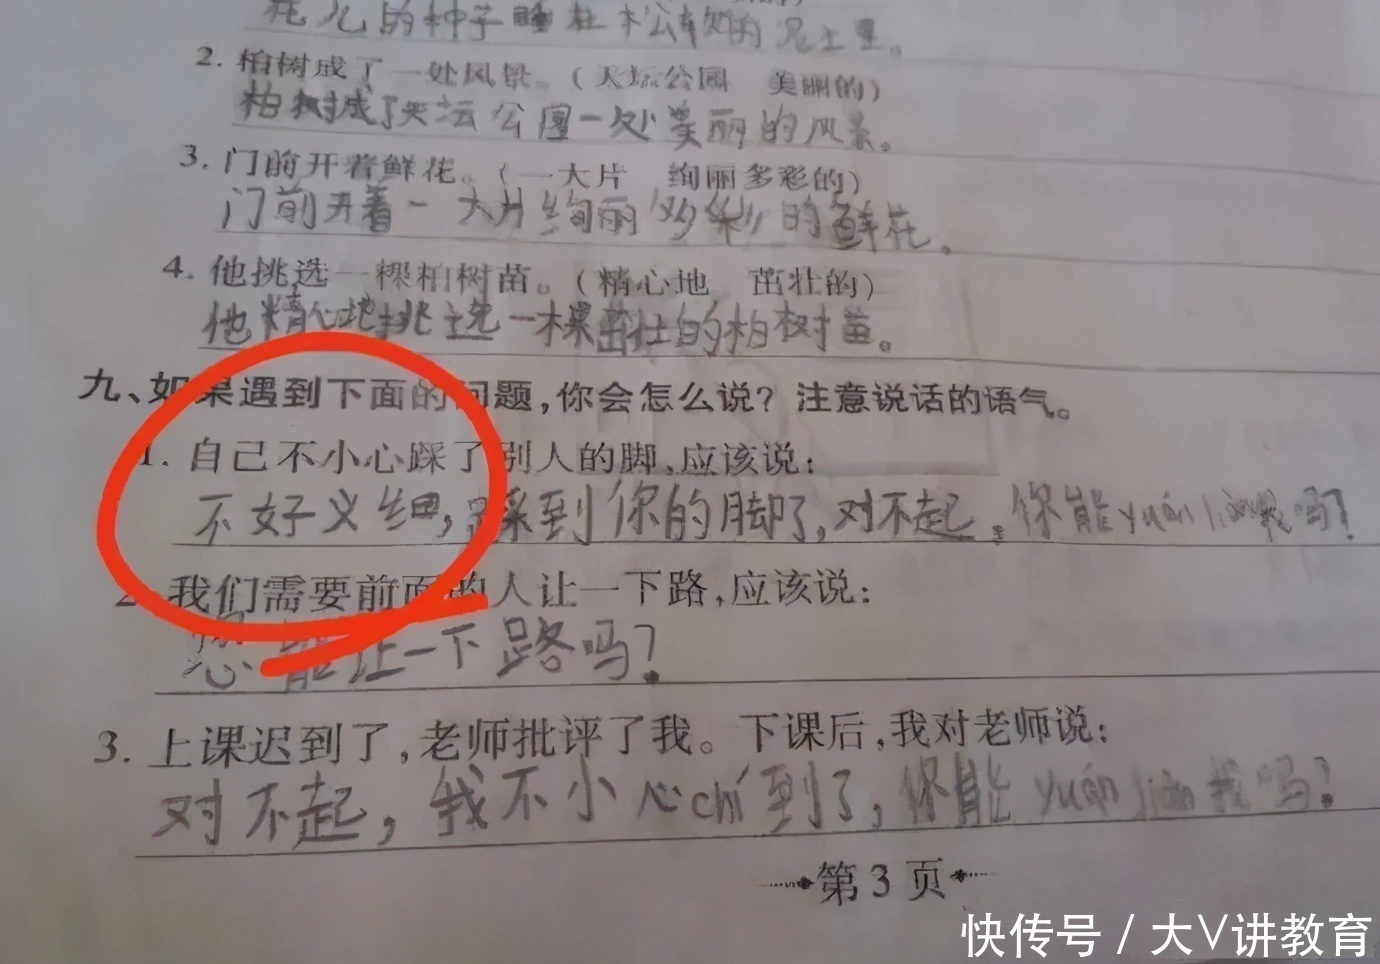 花儿的种子睡在松软的泥土里。
2. 柏树成了一处风景。(天坛公园 美丽的)
柏树成了天坛公园一处美丽的风景。
3. 门前开着鲜花。(一大片 绚丽多彩的)
门前开着一大片绚丽多彩的鲜花。
4. 他挑选一棵柏树苗。(精心地 茁壮的)
他精心地挑选一棵茁壮的柏树苗。
九、如果遇到下面的问题,你会怎么说?注意说话的语气。
1. 自己不小心踩了别人的脚,应该说:
不好义细,踩到你的脚了,对不起,你能yuán liàng我吗?
2. 我们需要前面的人让一下路,应该说:
您能让一下路吗?
3. 上课迟到了,老师批评了我。下课后,我对老师说:
对不起,我不小心chí到了,你能yuán liàng我吗?
第 3 页
快传号 / 大V讲教育